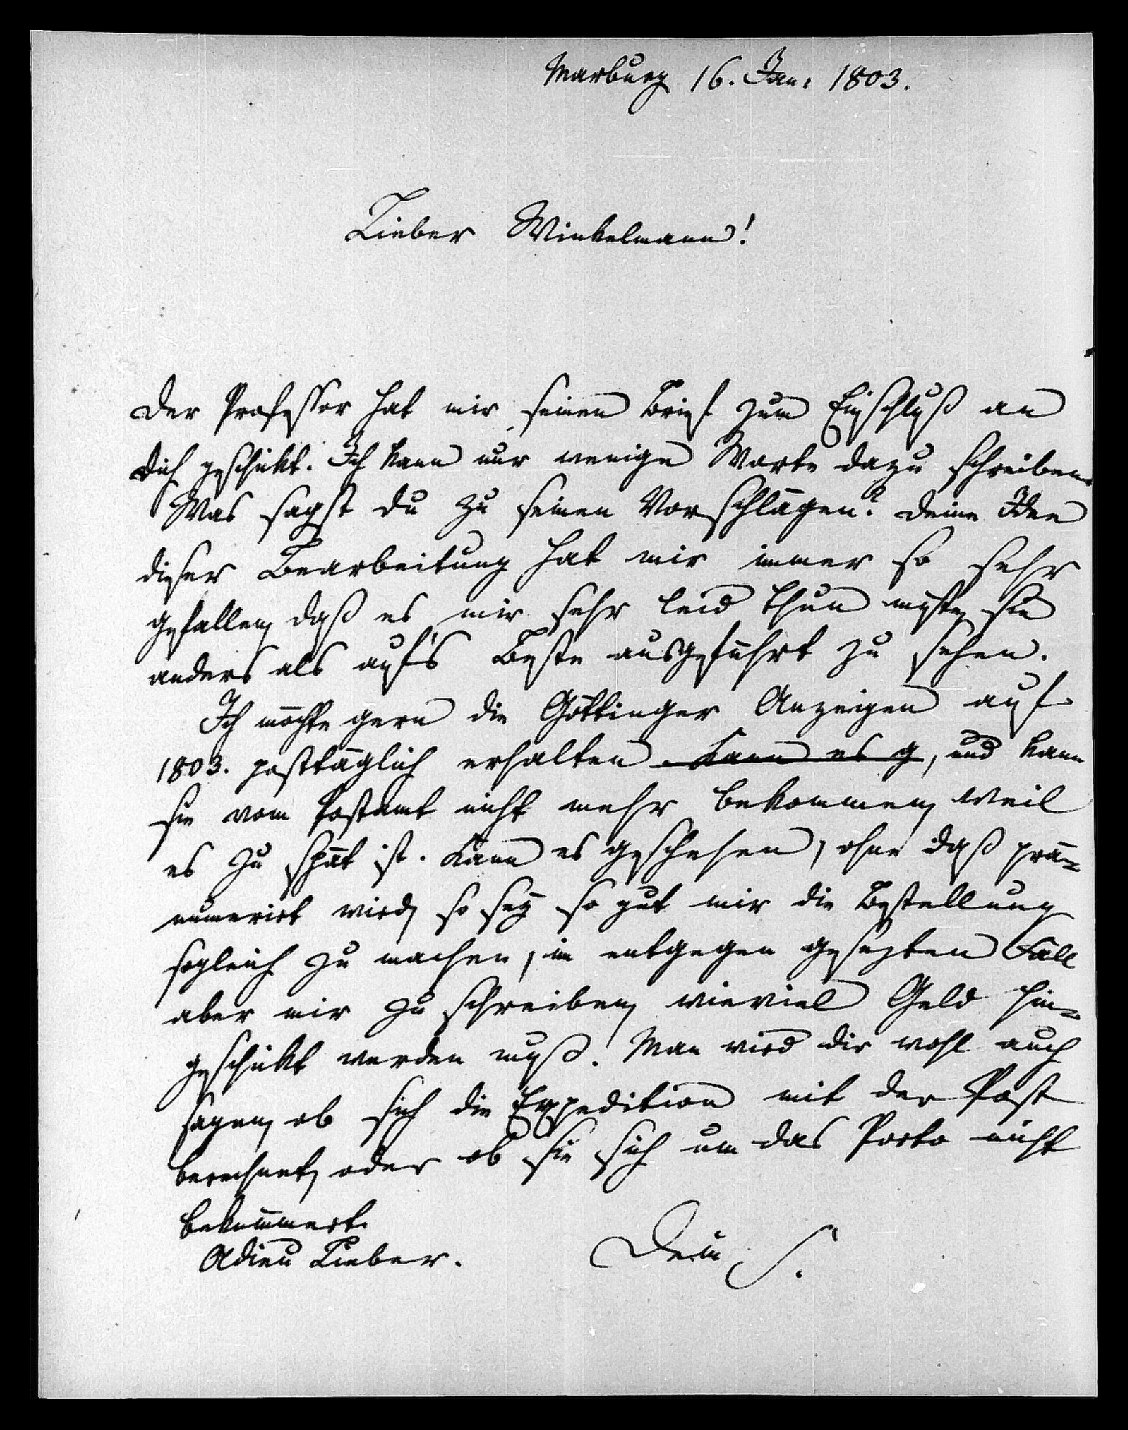 Marburg 16. Jan: 1803.
Lieber Winkelmann!
Der Professor hat mir seinen Brief zum Einschluß an
dich geschikt. Ich kann nur wenige Worte dazu schreiben.
Was sagst du zu seinen Vorschlägen? Deine Idee
dieser Bearbeitung hat mir immer so sehr
gefallen, daß es mir sehr leid thun müste, sie
anders als auf's Beste ausgeführt zu sehen.
Ich möchte gern die Göttinger Anzeigen auf
1803. posttäglich erhalten. Kann es g, und kann
sie vom Postamt nicht mehr bekommen, weil
es zu spät ist. Kann es geschehen, ohne daß prä-
numerirt wird, so sey so gut mir die Bestellung
sogleich zu machen, im entgegen gesezten Fall
aber mir zu schreiben, wieviel Geld hin-
geschikt werden muß. Man wird dir wohl auch
sagen, ob sich die Expedition mit der Post
berechnet, oder ob sie sich um das Porto nicht
bekümmert.
Adieu Lieber.
Dein S.